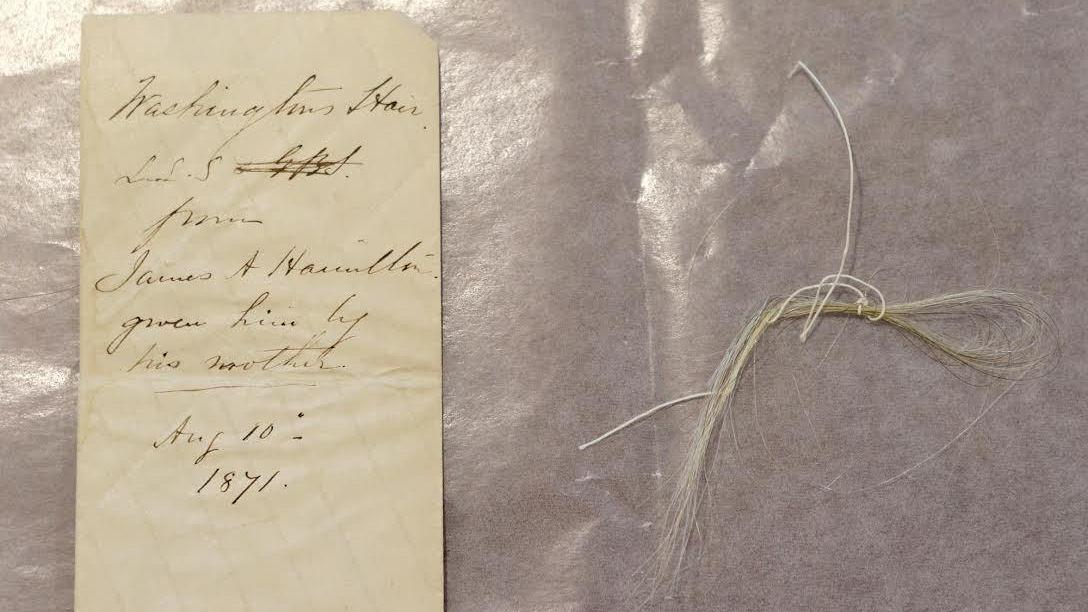 Washingtons Hair,
G B S.
from
James A Hamilton.
given him by
his mother.
Aug 10" -
1871.